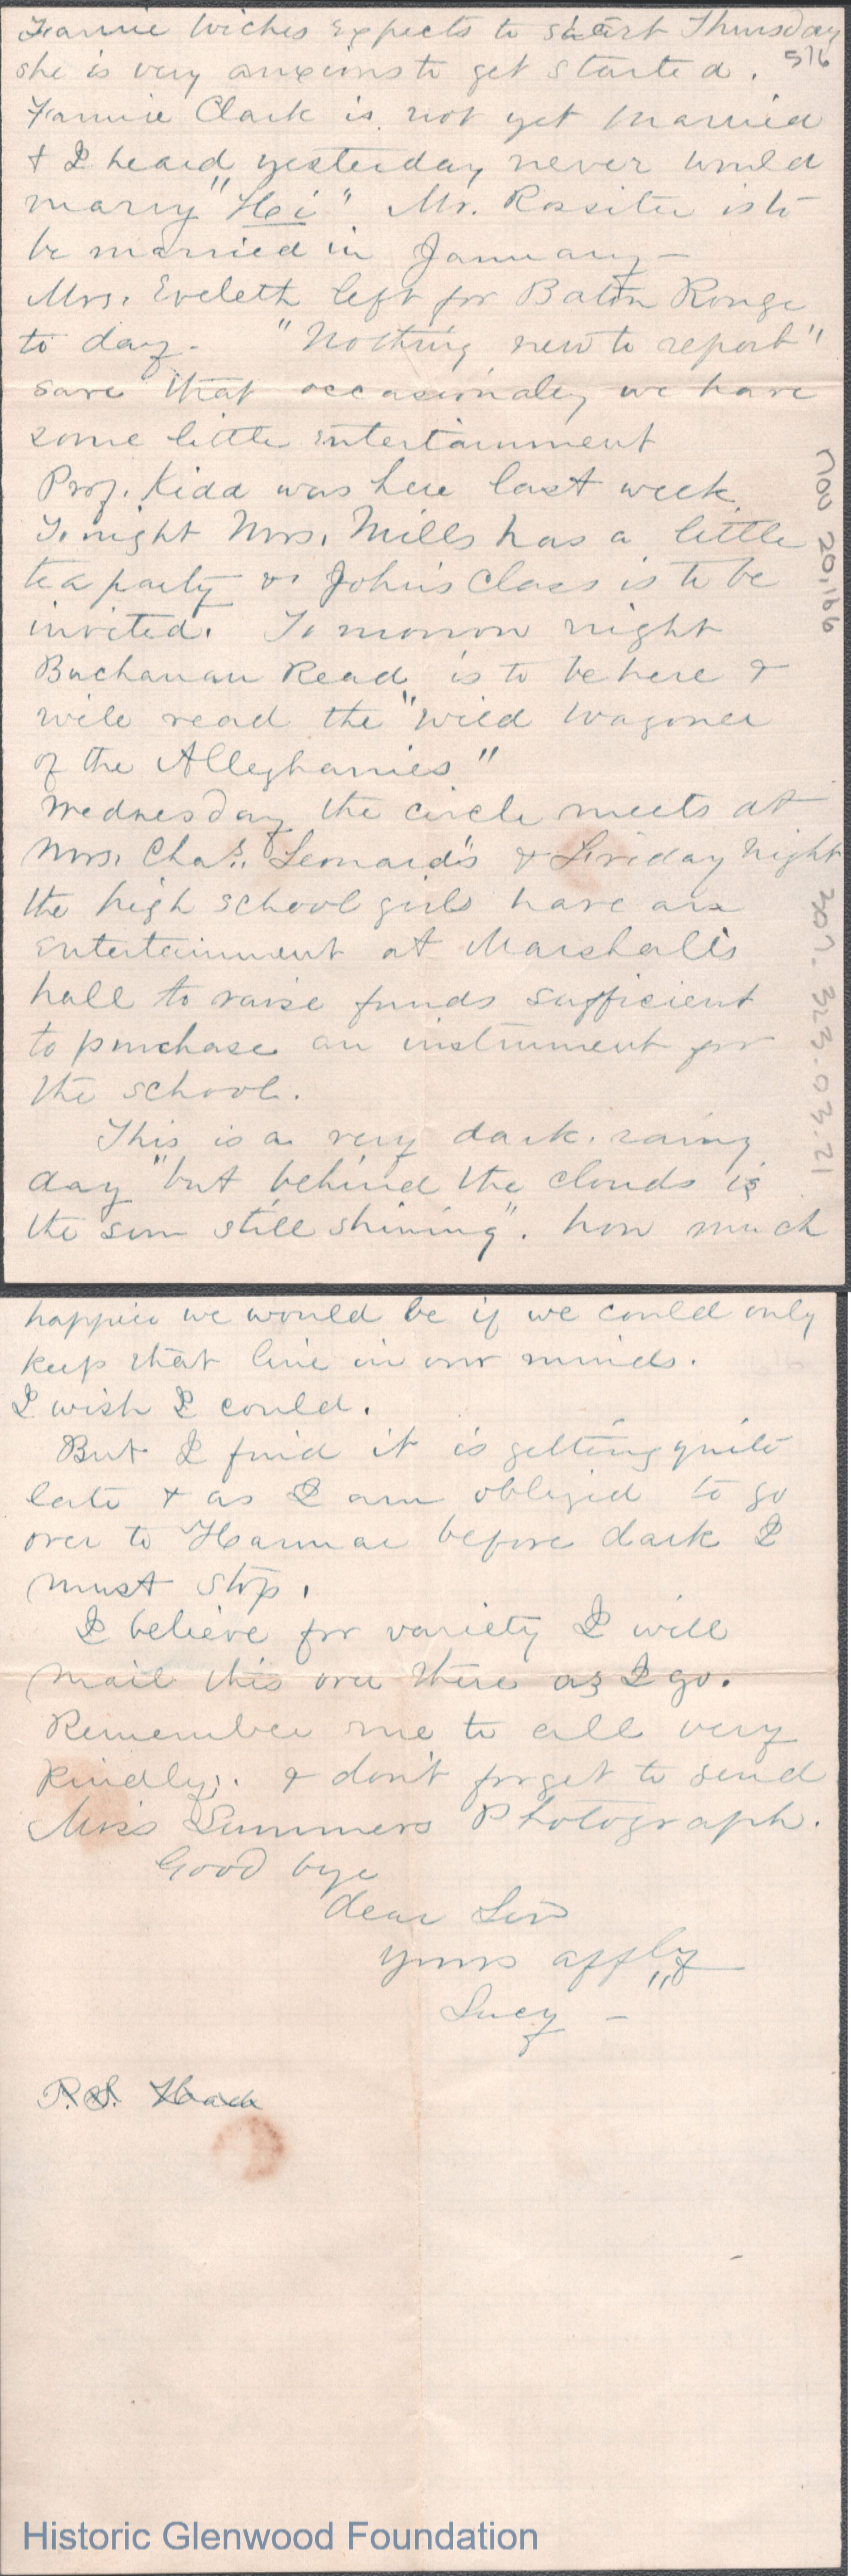 Fannie Wickes expects to start Thursday
she is very anxious to get started. 516
Fannie Clark is not yet married
& I heard yesterday never would
marry "Hi" Mr. Rossiter is to
be married in January —
Mrs. Eveleth left for Baton Rouge
to day. "Nothing new to report"
save that occasionaly we have
some little entertainment
Prof. Kidd was here last week.
To night Mrs. Mills has a little
tea party & John's class is to be
invited. To morrow night
Buchanan Read is to be here &
will read the "Wild Wagoner
of the Alleghanies"
Wednesday the circle meets at
Mrs. Chas. Leonard's & Friday night
the high school girls have an
entertainment at Marshall's
hall to raise funds sufficient
to purchase an instrument for
the school.
This is a very dark. rainy
day "but behind the clouds is
the sun still shining". how much
Nov 20, 166
307.323.03.21
happier we would be if we could only
keep that line in our minds.
I wish I could.
But I find it is getting quite
late & as I am obliged to go
over to Harmar before dark I
must stop.
I believe for variety I will
mail this over there as I go.
Remember me to all very
kindly. & don't forget to send
Mrs Summers Photograph.
Good bye
dear
yours affly
Lucy —
P.S.
Historic Glenwood Foundation